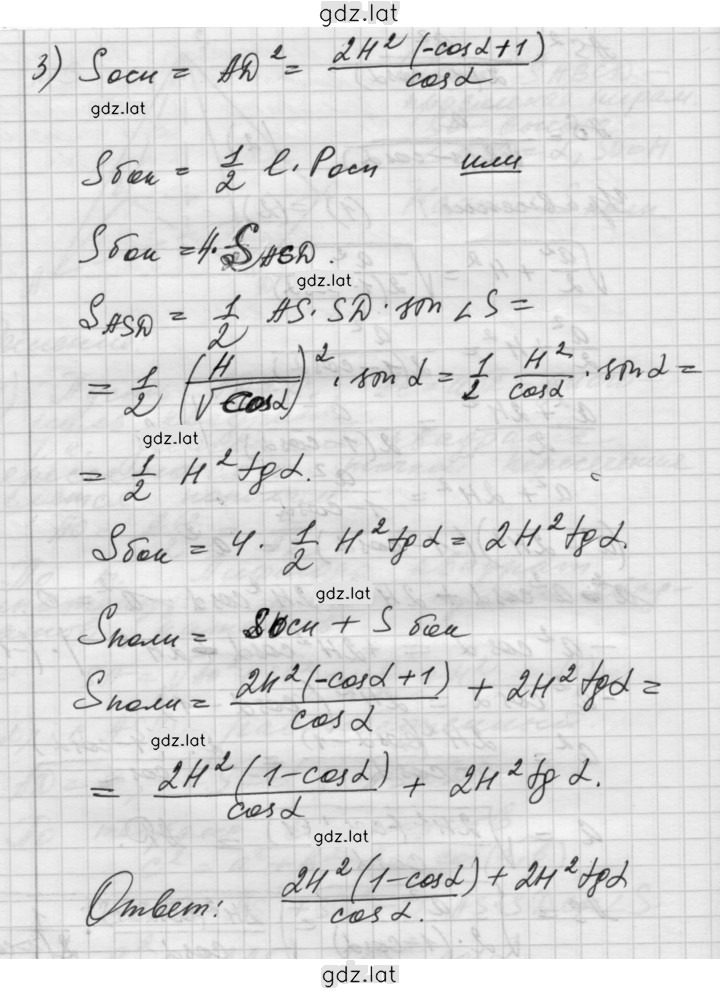 gdz.lat
3) Sосн = AD² = 2H²(-cosα+1)/cosα
gdz.lat
Sбок = 1/2 l · Pосн или
Sбок = 4 · S ASD.
gdz.lat
S ASD = 1/2 AS · SD · sin ∠S =
= 1/2 (H/√cosα)² · sin α = 1/2 H²/cosα · sin α =
gdz.lat
= 1/2 H² tg α.
Sбок = 4 · 1/2 H² tg α = 2H² tg α.
gdz.lat
Sполн = Sосн + S бок
Sполн = 2H²(-cosα+1)/cosα + 2H² tg α =
gdz.lat
= 2H²(1-cosα)/cosα + 2H² tg α.
gdz.lat
Ответ: 2H²(1-cosα)/cosα. + 2H² tg α
gdz.lat